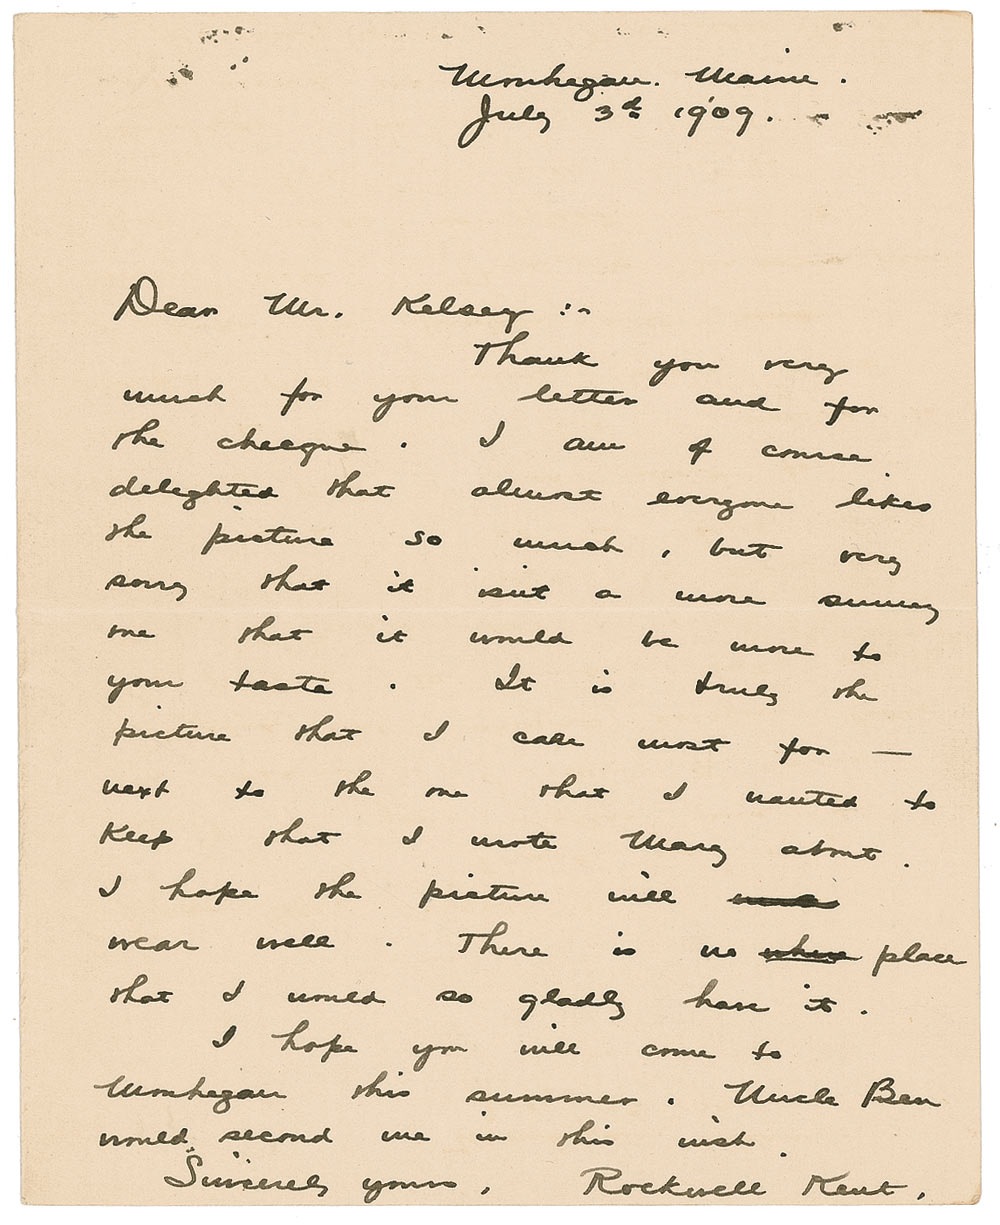 Monhegan. Maine.
July 3rd 1909.
Dear Mr. Kelsey :-
Thank you very
much for your letter and for
the checque. I am of course
delighted that almost everyone likes
the picture so much, but very
sorry that it isn't a more sunny
one that it would be more to
your taste. It is truly the
picture that I care most for —
next to the one that I wanted to
keep that I wrote Mary about.
I hope the picture will
wear well. There is no where place
that I would so gladly have it.
I hope you will come to
Monhegan this summer. Uncle Ben
would second me in this wish.
Sincerely yours, Rockwell Kent.